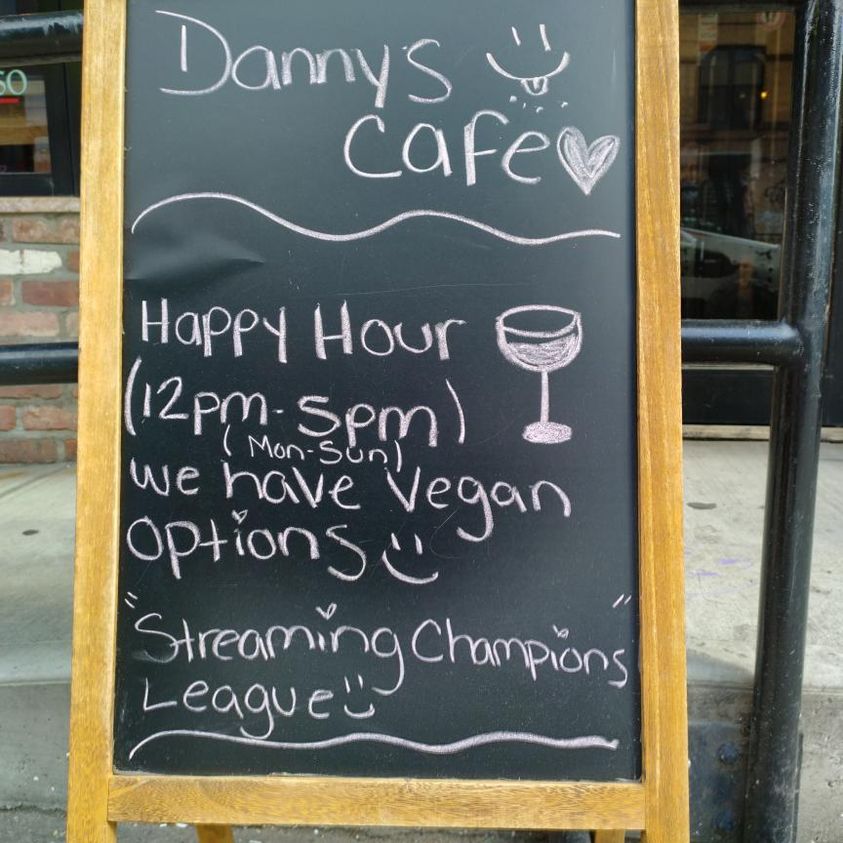 Dannys
Cafe
Happy Hour
(12pm-5pm)
(Mon-Sun)
we have Vegan
options
"Streaming Champions
League"